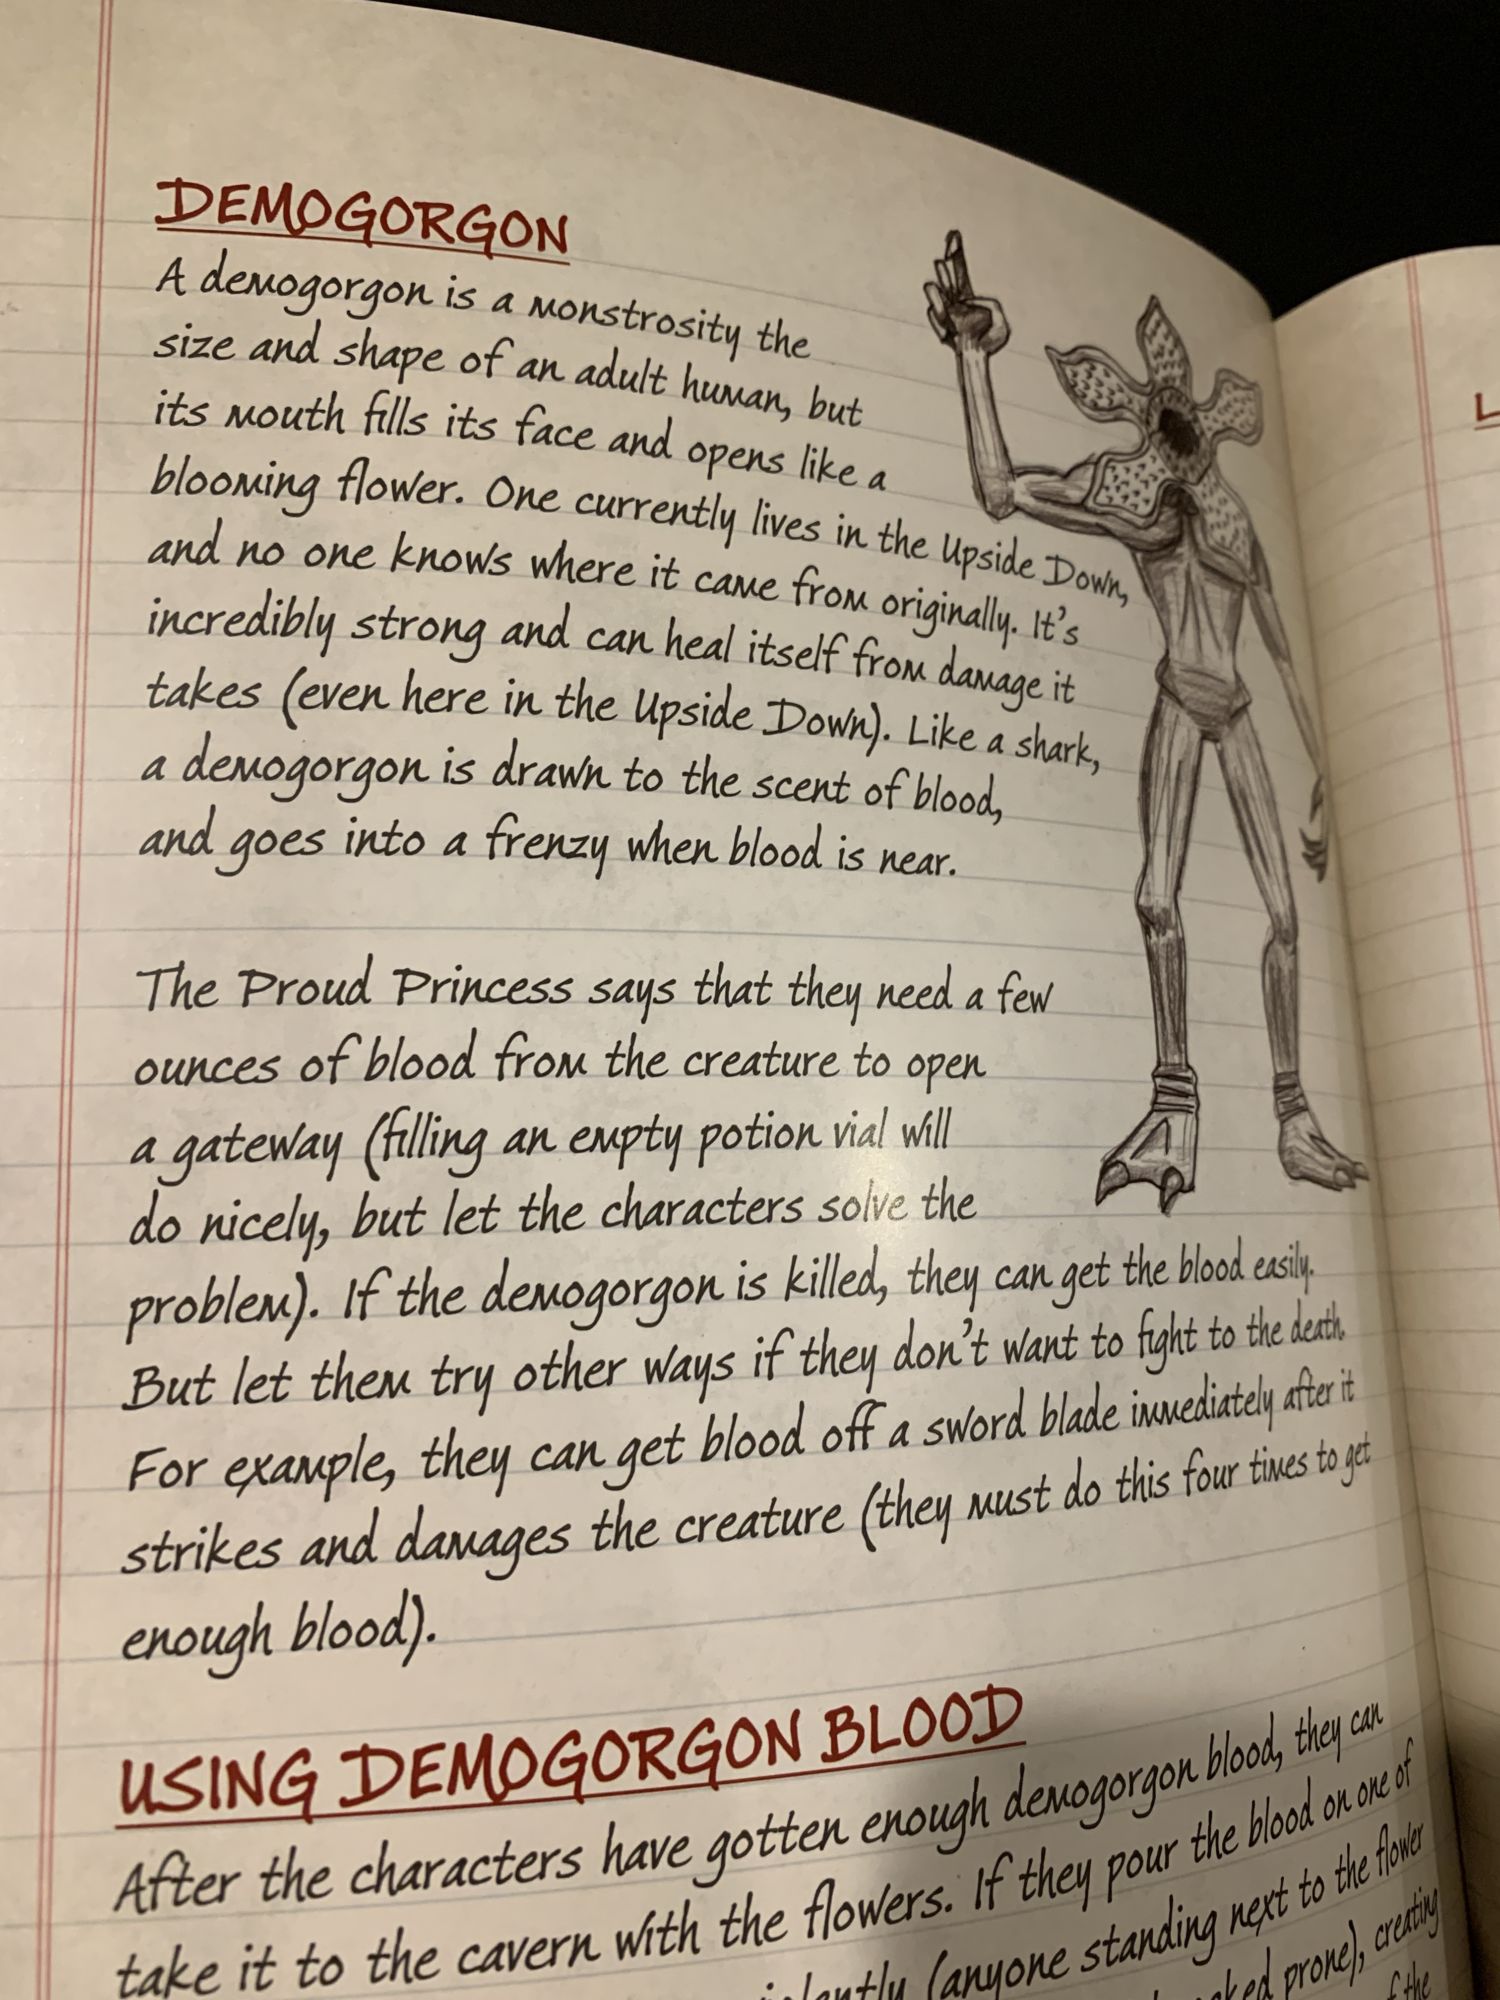 DEMOGORGON
A demogorgon is a monstrosity the
size and shape of an adult human, but
its mouth fills its face and opens like a
blooming flower. One currently lives in the Upside Down,
and no one knows where it came from originally. It's
incredibly strong and can heal itself from damage it
takes (even here in the Upside Down). Like a shark,
a demogorgon is drawn to the scent of blood,
and goes into a frenzy when blood is near.
The Proud Princess says that they need a few
ounces of blood from the creature to open
a gateway (filling an empty potion vial will
do nicely, but let the characters solve the
problem). If the demogorgon is killed, they can get the blood easily.
But let them try other ways if they don't want to fight to the death.
For example, they can get blood off a sword blade immediately after it
strikes and damages the creature (they must do this four times to get
enough blood).
USING DEMOGORGON BLOOD
After the characters have gotten enough demogorgon blood, they can
take it to the cavern with the flowers. If they pour the blood on one of
(anyone standing next to the flower
prone), creating
of the